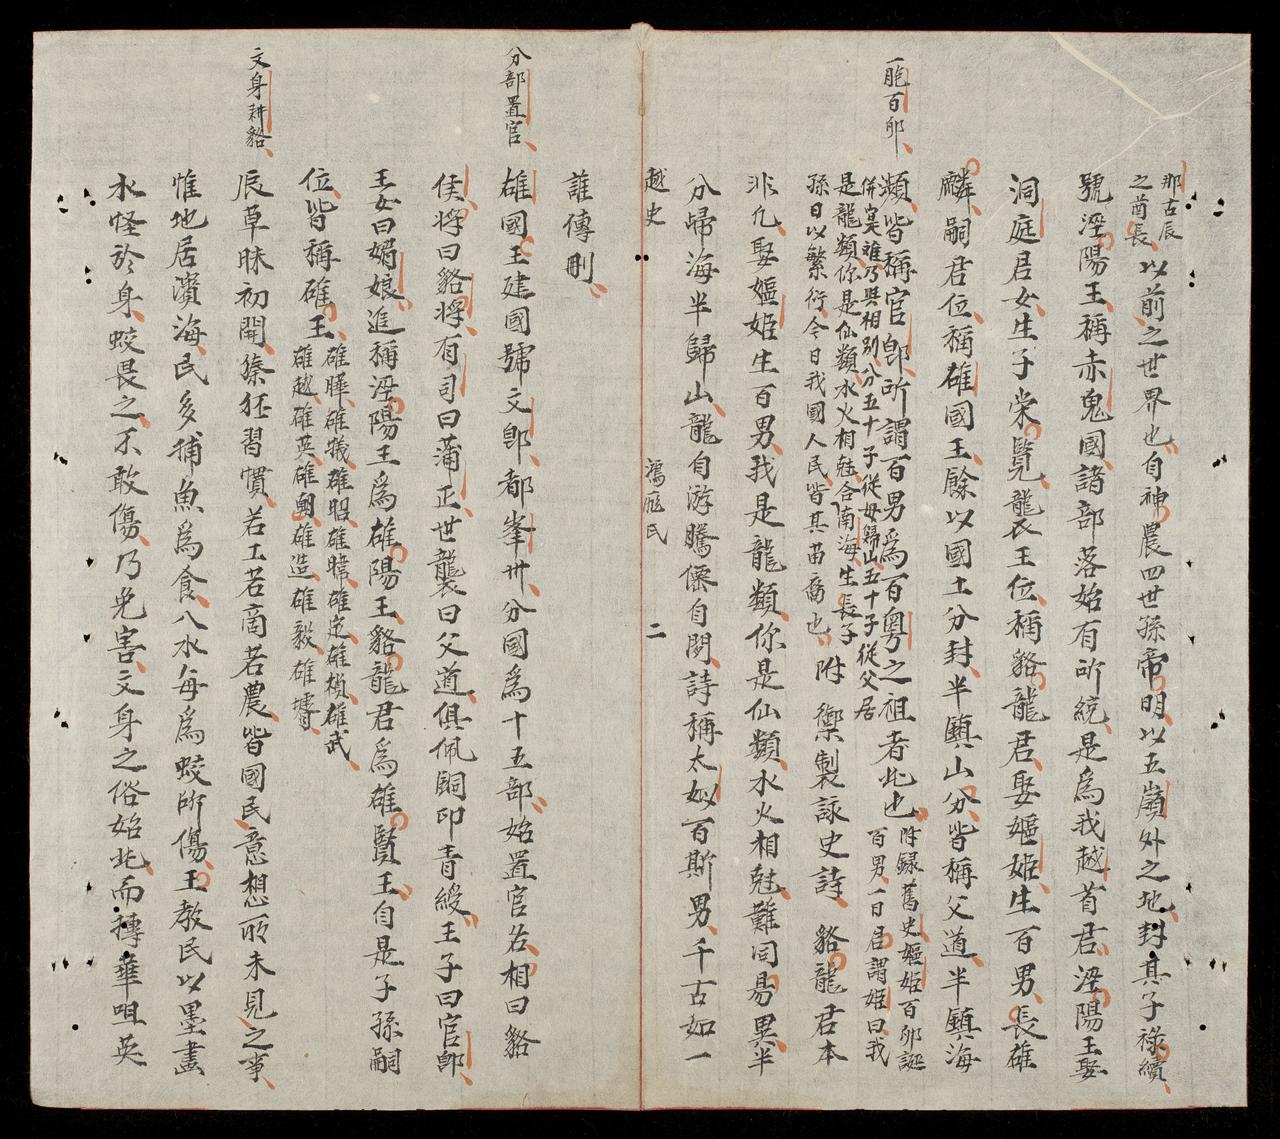 一胞百卵
那古辰
之酋長
以前之世界也自神農四世孫帝明以五嶺外之地封其子祿續
號涇陽王稱赤鬼國諸部落始有所統是爲我越首君涇陽王娶
洞庭君女生子崇覽襲王位稱貉龍君娶嫗姬生百男長雄
麟嗣君位稱雄國王餘以國土分封半鎮山分皆稱父道半鎮海
瀕皆稱官郎所謂百男爲百粵之祖者此也
附録舊史嫗姬百卵誕
百男一日君謂姬曰我
是龍類你是仙類水火相尅合
南海生長子
孫日以繁衍今日我國人民皆其苗裔也
附 禦製詠史詩 貉龍君本
非凡娶嫗姬生百男我是龍類你是仙類水火相尅難同易異半
分歸海半歸山龍自游騰僊自閒詩稱太姒百斯男千古如一
越史 鴻厖氏 二
誰傳刪
分部置官
雄國王建國號文郎都峯州分國爲十五部始置官名相曰貉
侯將曰貉將有司曰蒲正世襲曰父道俱佩銅印青綬王子曰官郎
王女曰媚娘進稱涇陽王爲雄陽王貉龍君爲雄賢王自是子孫嗣
位皆稱雄王
雄曄雄犧雄昭雄暐雄定雄楨雄武
雄越雄英雄朝雄造雄毅雄壻
文身耕貉
辰草昧初開獉狉習慣若工若商若農皆國民意想所未見之事
惟地居濱海民多捕魚爲食入水每爲蛟所傷王教民以墨畫
水怪於身蛟畏之不敢傷乃免害文身之俗始此而摶華咀英